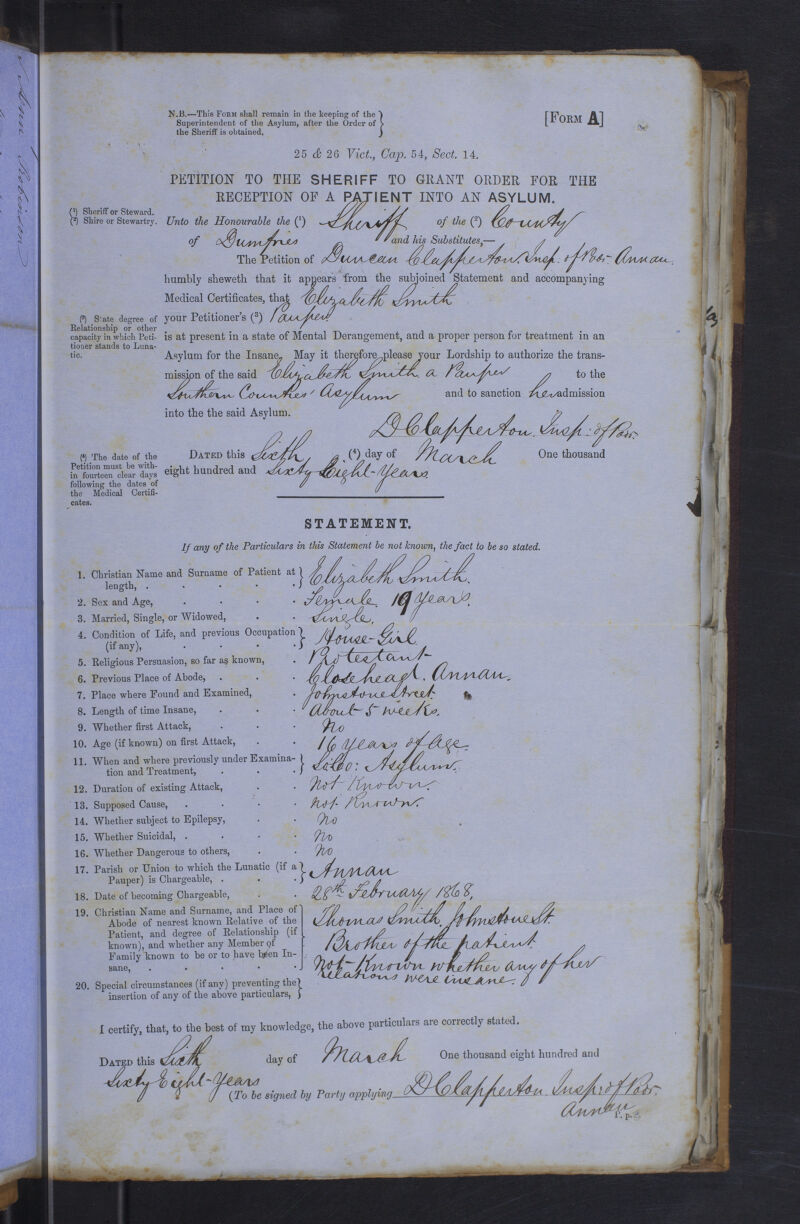 Ann Robinson
N.B.—This Form shall remain in the keeping of the
Superintendent of the Asylum, after the Order of
the Sheriff is obtained.
[Form A]
25 & 26 Vict., Cap. 54, Sect. 14.
PETITION TO THE SHERIFF TO GRANT ORDER FOR THE
RECEPTION OF A PATIENT INTO AN ASYLUM.
(¹) Sheriff or Steward.
(²) Shire or Stewartry.
Unto the Honourable the (¹) Sheriff of the (²) County
of Dumfries and his Substitutes,—
The Petition of Duncan Clapperton. Insp. of Poor Annan.
humbly sheweth that it appears from the subjoined Statement and accompanying
Medical Certificates, that Elizabeth Smith
(³) State degree of
Relationship or other
capacity in which Peti-
tioner stands to Luna-
tic.
your Petitioner's (³) Pauper
is at present in a state of Mental Derangement, and a proper person for treatment in an
Asylum for the Insane. May it therefore please your Lordship to authorize the trans-
mission of the said Elizabeth Smith a Pauper to the
Southern Counties' Asylum and to sanction her admission
into the the said Asylum.
D Clapperton. Insp: of Poor.
(⁴) The date of the
Petition must be with-
in fourteen clear days
following the dates of
the Medical Certifi-
cates.
Dated this Sixth (⁴) day of March One thousand
eight hundred and Sixty Eight-Years
STATEMENT.
If any of the Particulars in this Statement be not known, the fact to be so stated.
1. Christian Name and Surname of Patient at
length, . . . . . Elizabeth Smith.
2. Sex and Age, . . . . Female 19 Years.
3. Married, Single, or Widowed, . . Single.
4. Condition of Life, and previous Occupation
(if any), . . . . House-Girl
5. Religious Persuasion, so far as known, . Protestant
6. Previous Place of Abode, . . . Closehead. Annan.
7. Place where Found and Examined, . Johnstone Street.
8. Length of time Insane, . . . About 5 weeks.
9. Whether first Attack, . . . No
10. Age (if known) on first Attack, . . 16 years of age.
11. When and where previously under Examina-
tion and Treatment, . . . Asylum.
12. Duration of existing Attack, . . Not Known.
13. Supposed Cause, . . . . Not Known.
14. Whether subject to Epilepsy, . . No
15. Whether Suicidal, . . . . No
16. Whether Dangerous to others, . . No
17. Parish or Union to which the Lunatic (if a
Pauper) is Chargeable, . . . Annan
18. Date of becoming Chargeable, . . 28th February 1868.
19. Christian Name and Surname, and Place of
Abode of nearest known Relative of the
Patient, and degree of Relationship (if
known), and whether any Member of
Family known to be or to have been In-
sane, . . . . .
Thomas Smith, Johnstone St
Brother of the patient
Not Known whether any of her
relations were insane.
20. Special circumstances (if any) preventing the
insertion of any of the above particulars,
I certify, that, to the best of my knowledge, the above particulars are correctly stated.
Dated this Sixth day of March One thousand eight hundred and
Sixty Eight-Years
(To be signed by Party applying D Clapperton. Insp: of Poor.
Annan